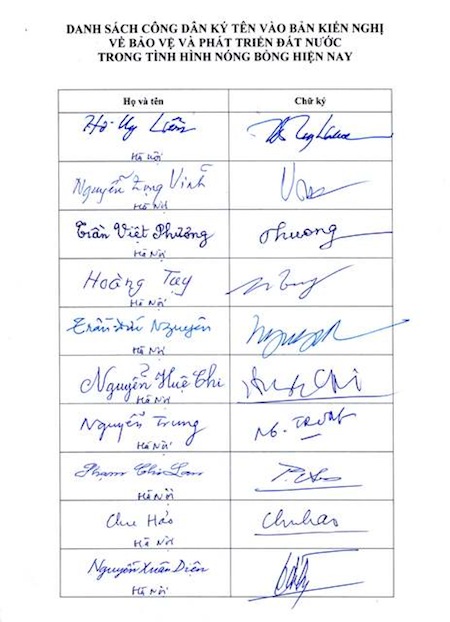 DANH SÁCH CÔNG DÂN KÝ TÊN VÀO BẢN KIẾN NGHỊ
VỀ BẢO VỆ VÀ PHÁT TRIỂN ĐẤT NƯỚC
TRONG TÌNH HÌNH NÓNG BỎNG HIỆN NAY
Họ và tên Chữ ký
Hồ Uy Liêm
Hà Nội
Nguyễn Trọng Vĩnh
Hà Nội
Trần Việt Phương Phương
Hà Nội
Hoàng Tụy
Hà Nội
Trần Đức Nguyên Nguyen
Hà Nội
Nguyễn Huệ Chi
Hà Nội
Nguyễn Trung Ng. TRUNG
Hà Nội
Phạm Chi Lan
Hà Nội
Chu Hảo Chuhao
Hà Nội
Nguyễn Xuân Diện
Hà Nội